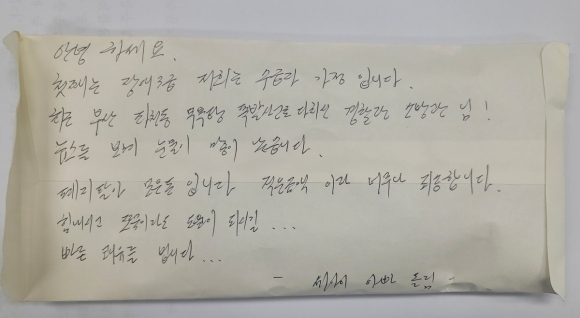 안녕 하세요.
첫째는 장애3급 저희는 수급자 가정 입니다.
최근 부산 목욕탕 폭발사고로 다치신 경찰관 소방관 님!
뉴스를 보며 눈물이 많이 났습니다.
폐지팔아 모은돈 입니다 적은금액 이라 너무나 죄송합니다.
힘내시고 조금이라도 도움이 되시길 ...
빠른 쾌유를 빕니다 ...
- 아빠 드림 -